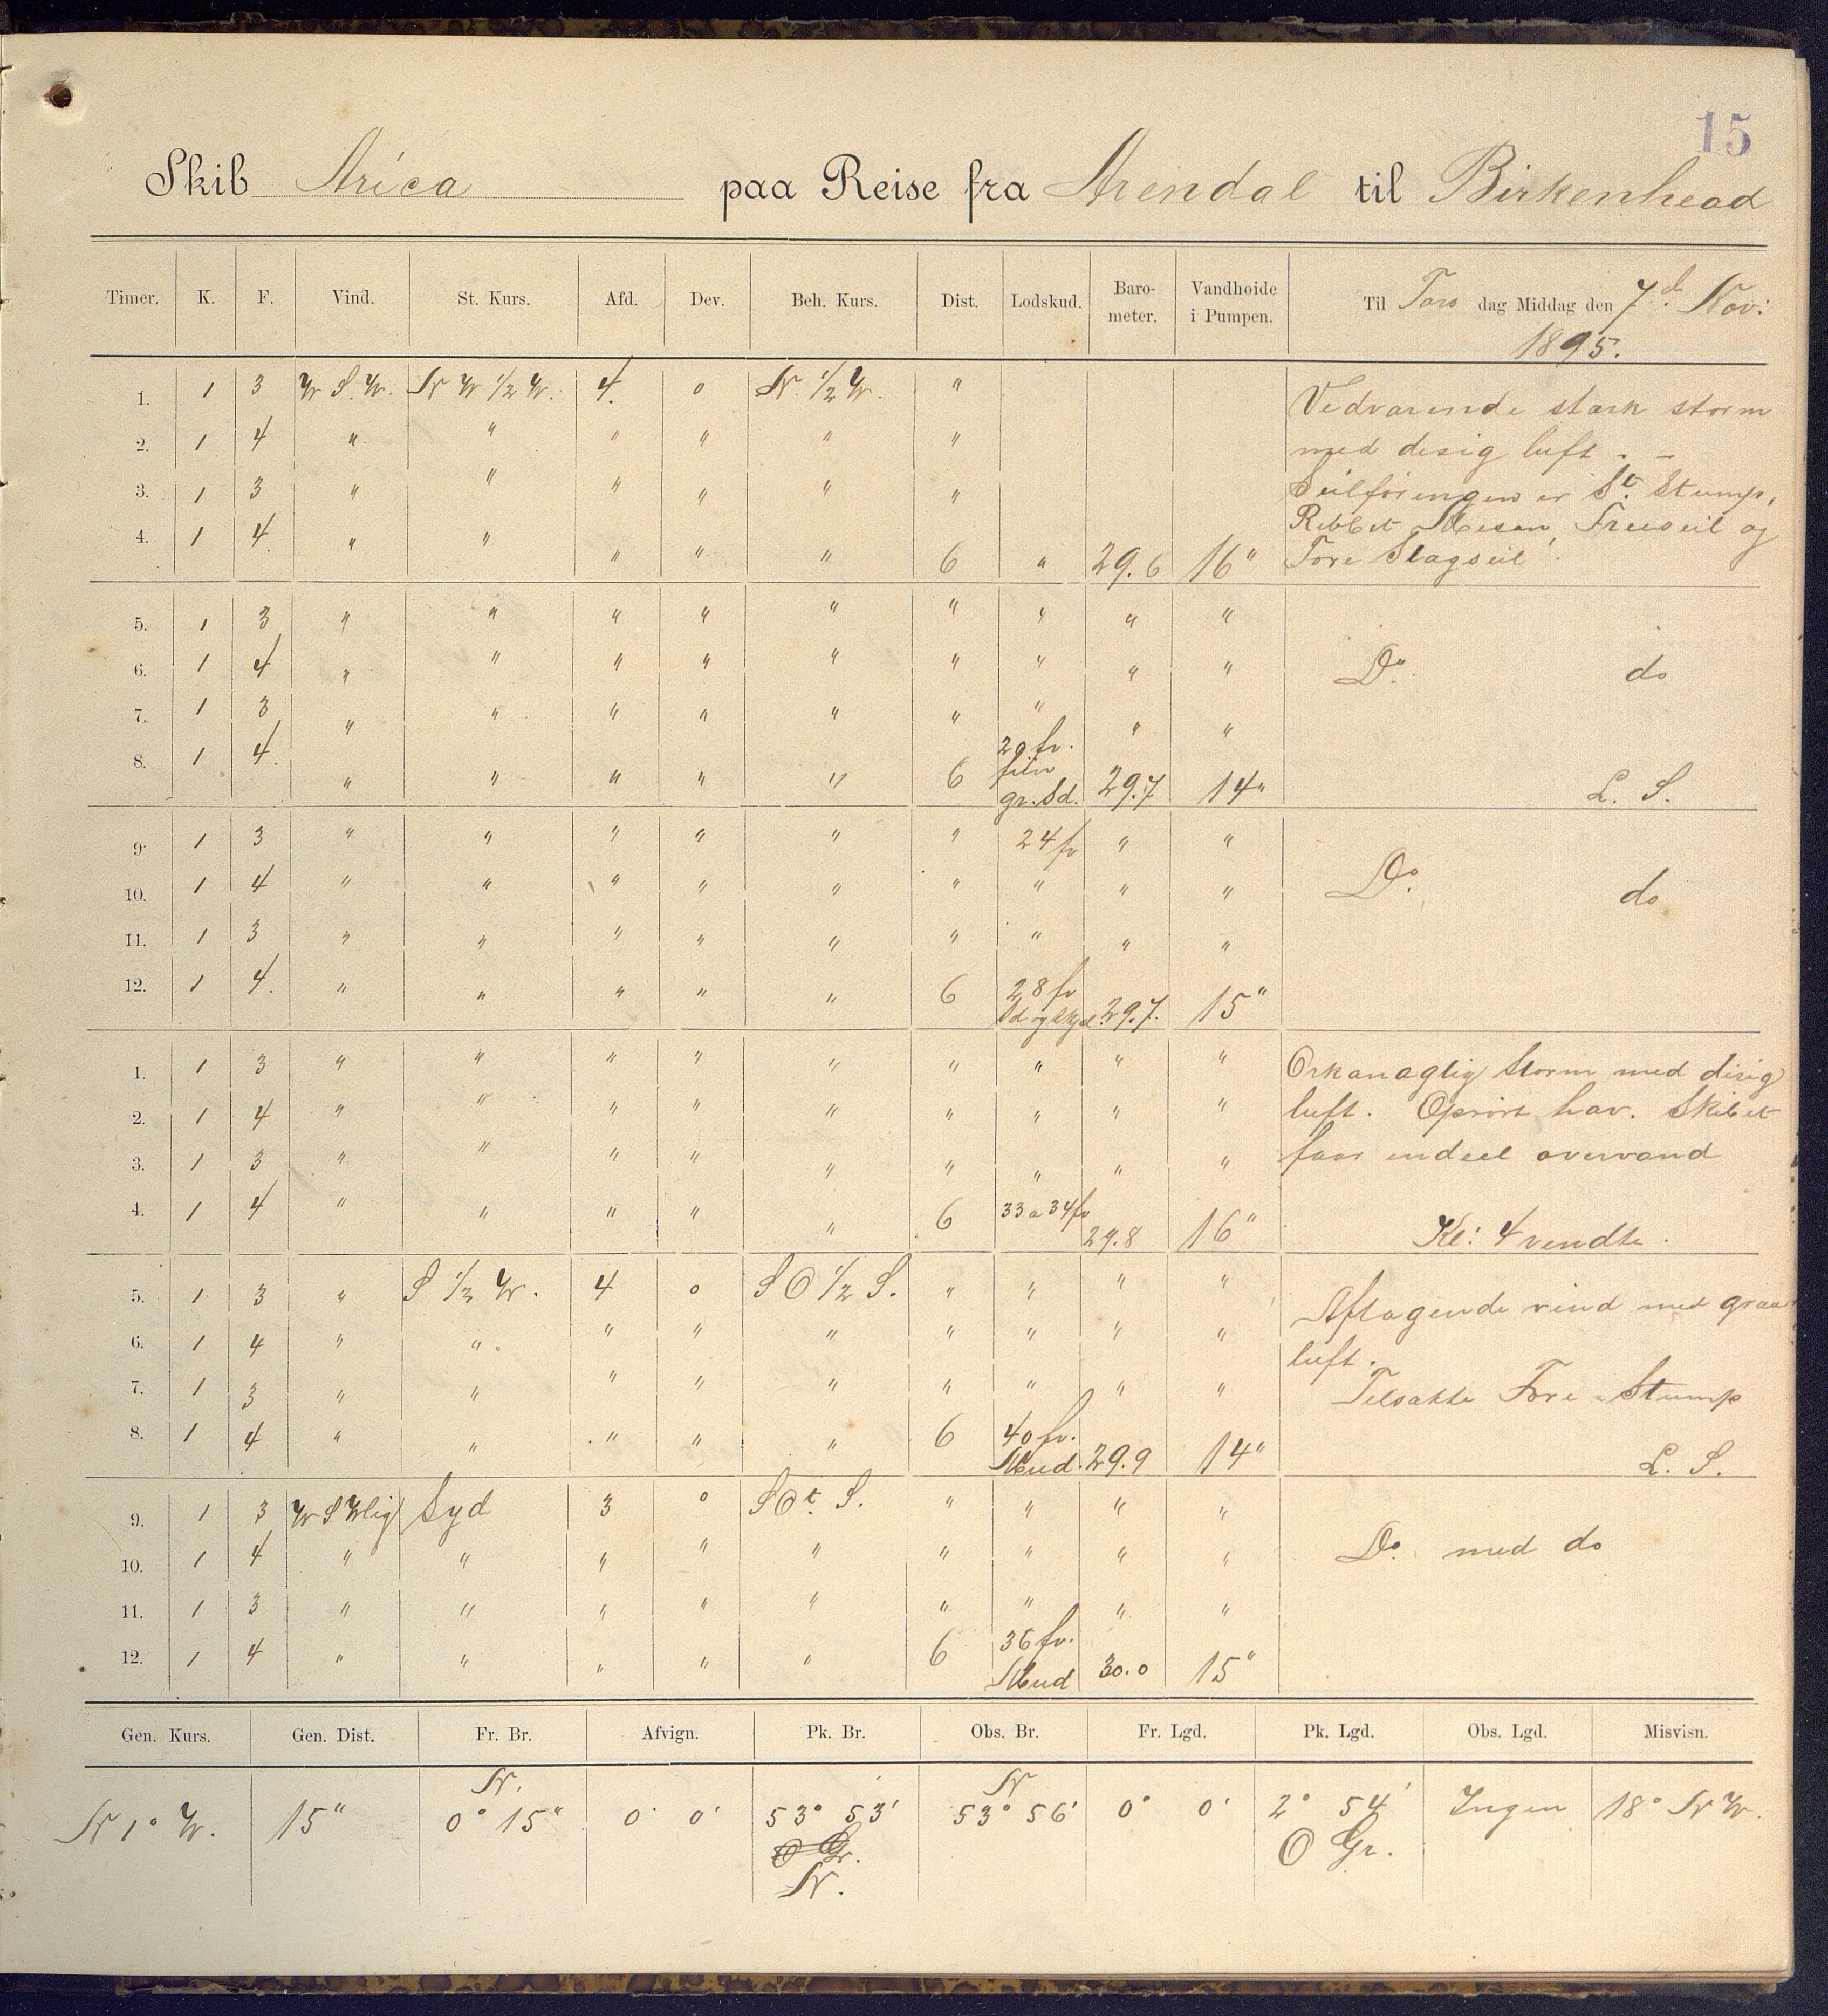 15
Skib Arica paa Reise fra Arendal til Birkenhead
Timer. K. F. Vind. St. Kurs. Afd. Dev. Beh. Kurs. Dist. Lodskud. Baro-meter. Vandhoide i Pumpen. Til Tors dag Middag den 7d. Nov: 1895.
1. 1 3 W S. W. N W 1/2 W. 4. 0 N. 1/2 W. " Vedvarende stærk storm
2. 1 4 " " " " " " med disig luft. –
3. 1 3 " " " " " " Seilføringen er St. Stump,
4. 1 4 " " " " " 6 " 29.6 16" Rebbet Mesan, Fore Stagseil og
5. 1 3 " " " " " " " " "
6. 1 4 " " " " " " " " " Do. do
7. 1 3 " " " " " " " " "
8. 1 4. " " " " " 6 20 fv. fiin gr. Sd. 29.7 14" L. S.
9. 1 3 " " " " " " 24 fv " "
10. 1 4 " " " " " " " " " Do. do
11. 1 3 " " " " " " " " "
12. 1 4. " " " " " 6 28 fv Sd og Skjæl 29.7. 15"
1. 1 3 " " " " " " " " " Orkanagtig Storm med disig
2. 1 4 " " " " " " " " " luft. Oprørt hav. Skibet
3. 1 3 " " " " " " " " " faar endeel overvand
4. 1 4 " " " " " 6 33 a 34 fv 29.8 16" Kl: 4 vendte.
5. 1 3 " S 1/2 W. 4 0 S O 1/2 S. " " " " Aftagende vind med graa
6. 1 4 " " " " " " " " " luft.
7. 1 3 " " " " " " " " " Tilsatte Fore-Stump
8. 1 4 " " " " " 6 40 fv. Mud. 29.9 14" L. S.
9. 1 3 W S. Wlig Syd 3 0 S Ot. S. " " " "
10. 1 4 " " " " " " " " " Do. med do
11. 1 3 " " " " " " " " "
12. 1 4 " " " " " 6 36 fv. Mud 30.0 15"
Gen. Kurs. Gen. Dist. Fr. Br. Afvign. Pk. Br. Obs. Br. Fr. Lgd. Pk. Lgd. Obs. Lgd. Misvisn.
N 1° W. 15" N. 0° 15" 0° 0' 53° 53' N. N 53° 56' 0° 0' 2° 54' O Gr. Ingen 18° N W.